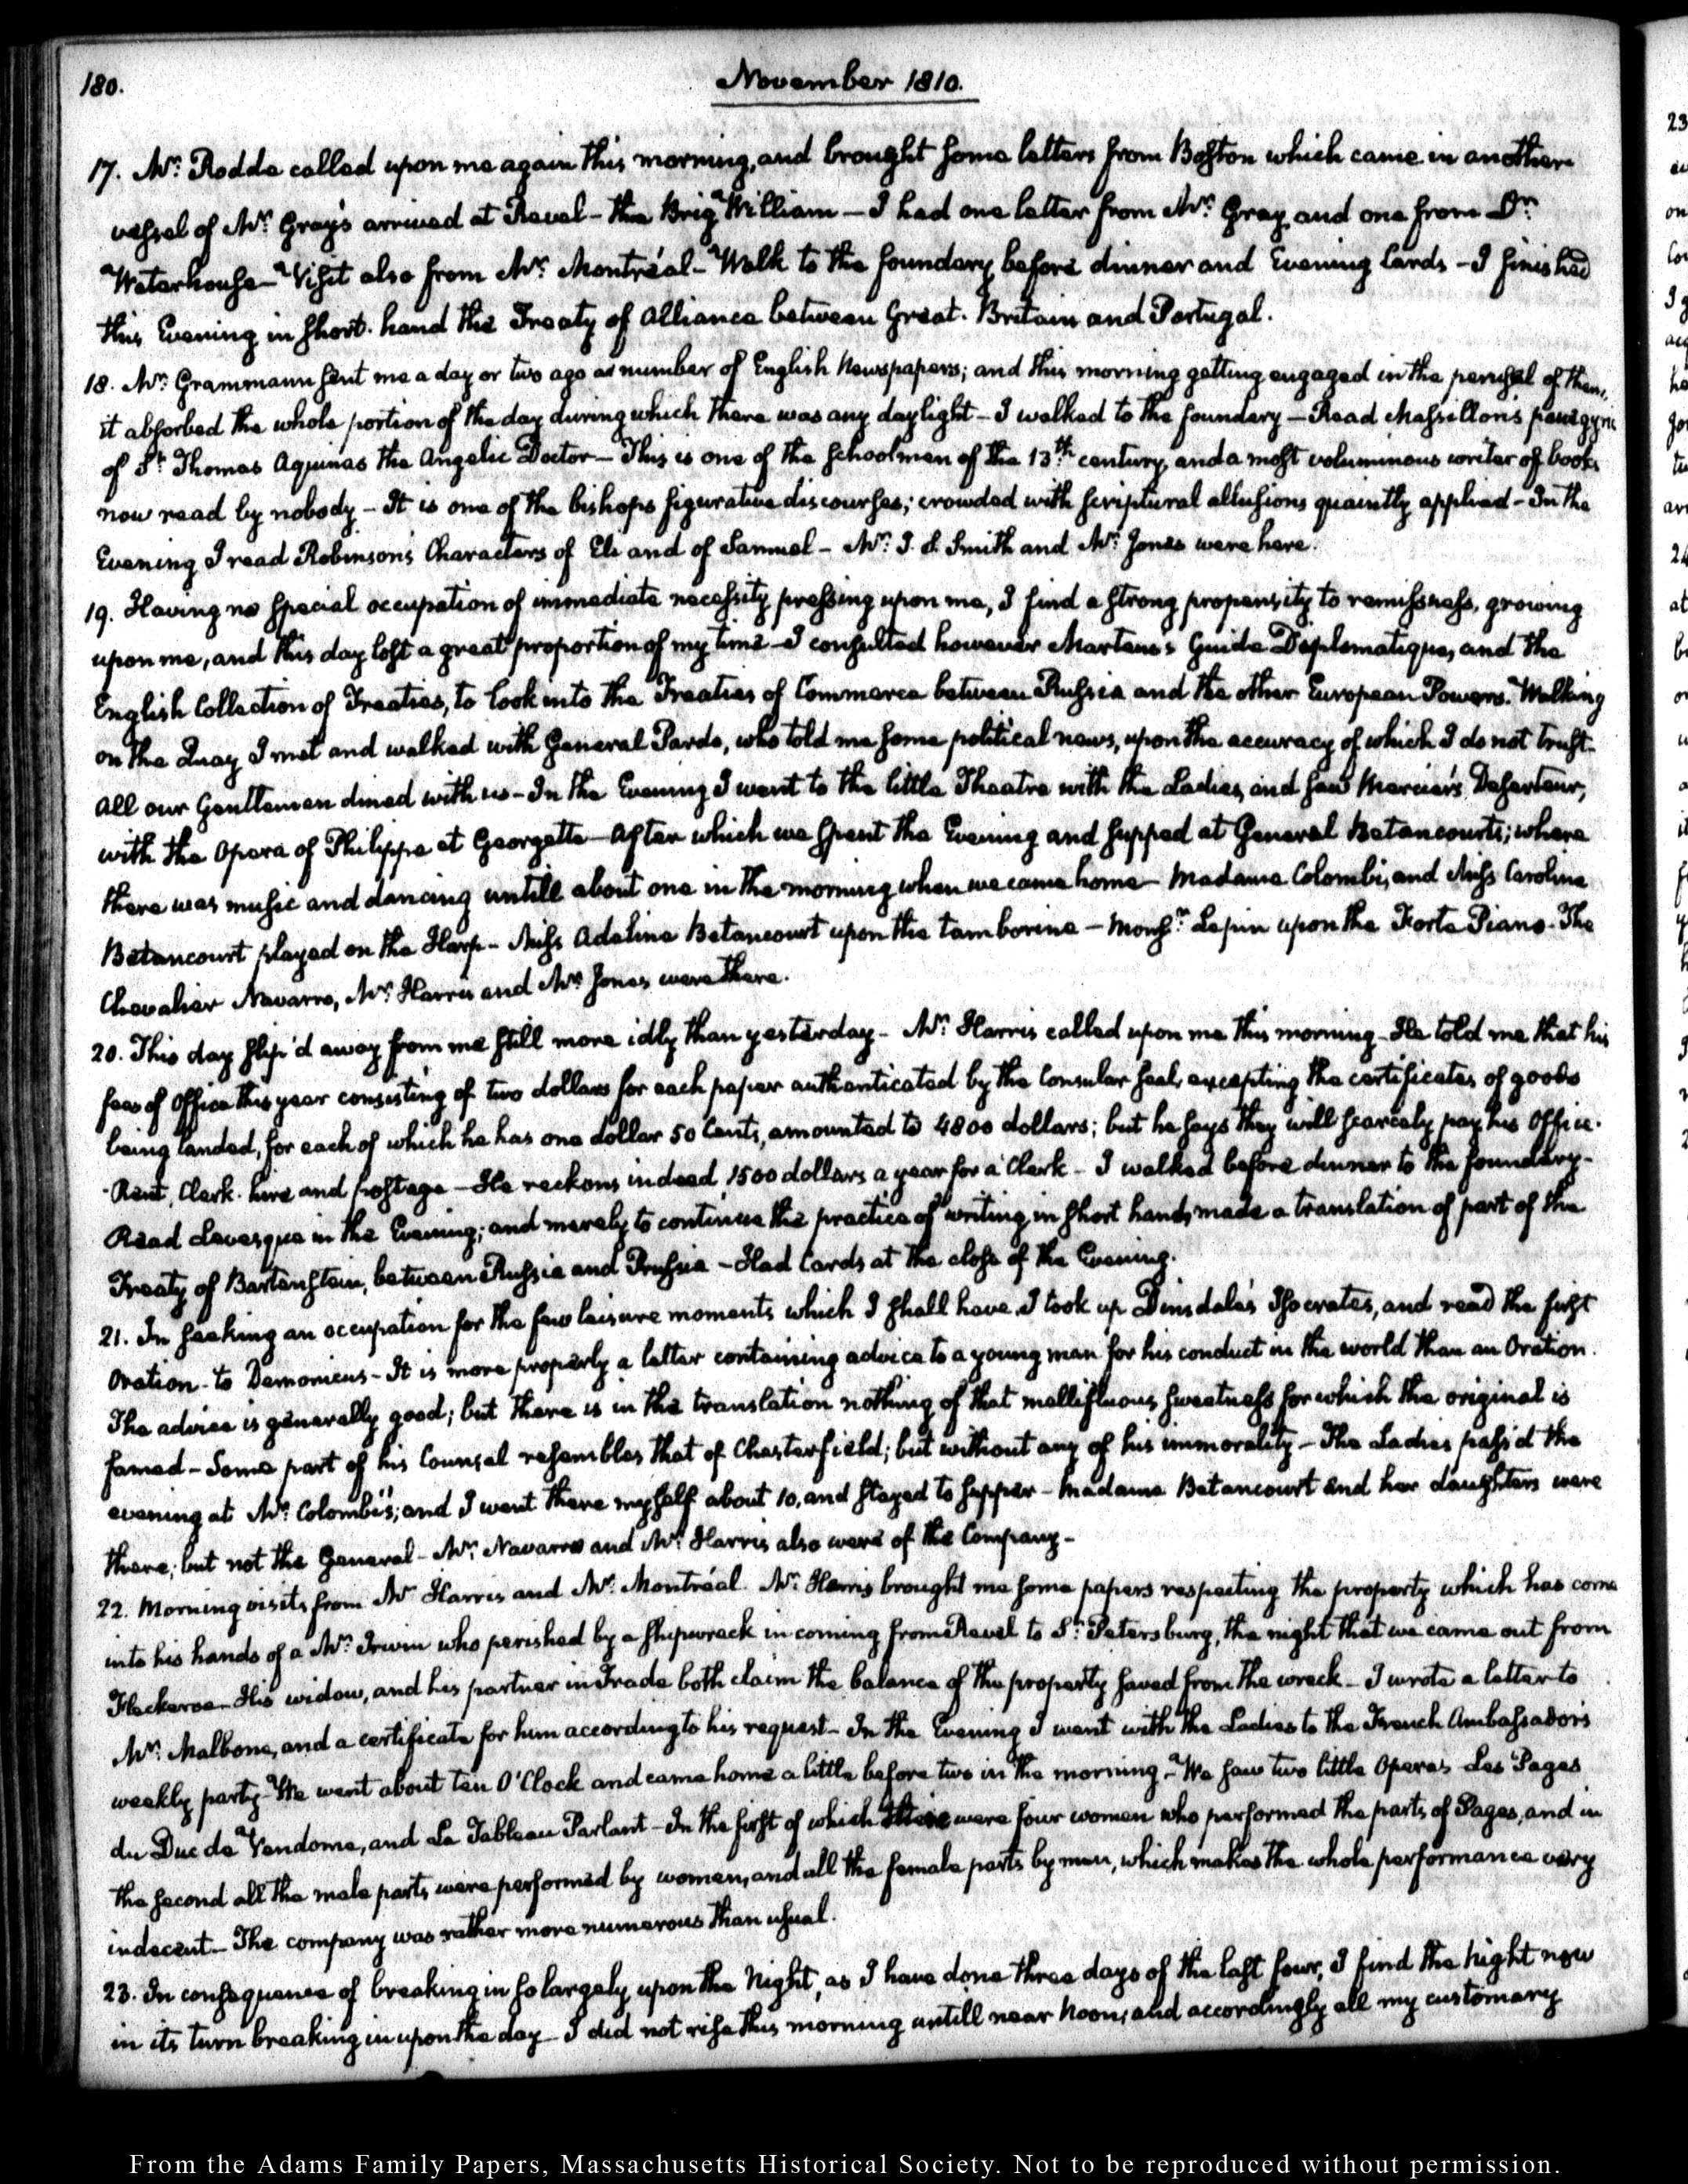 180.
November 1810.
17. Mr: Rodde called upon me again this morning, and brought some letters from Boston which came in another
vessel of Mr: Gray's arrived at Reval - the Brig William - I had one letter from Mr: Gray, and one from Dr:
Waterhouse - Visit also from Mr: Montréal - Walk to the foundery before dinner and Evening Cards - I finished
this Evening in short-hand the Treaty of Alliance between Great-Britain and Portugal.
18. Mr: Grammann sent me a day or two ago a number of English Newspapers; and this morning getting engaged in the perusal of them,
it absorbed the whole portion of the day during which there was any daylight - I walked to the foundery - Read Massillon's panegyric
of St: Thomas Aquinas the Angelic Doctor - This is one of the schoolmen of the 13th century, and a most voluminous writer of books
now read by nobody - It is one of the bishop's figurative discourses; crowded with scriptural allusions quaintly applied - In the
Evening I read Robinson's Characters of Eli and of Samuel - Mr: J. S. Smith and Mr: Jones were here.
19. Having no special occupation of immediate necessity pressing upon me, I find a strong propensity to remissness, growing
upon me, and this day lost a great proportion of my time - I consulted however Martens's Guide Diplomatique, and the
English Collection of Treaties, to look into the Treaties of Commerce between Russia and the other European Powers. Walking
on the Quay I met and walked with General Pardo, who told me some political news, upon the accuracy of which I do not trust.
All our Gentlemen dined with us - In the Evening I went to the little Theatre with the Ladies, and saw Mercier's Deserteur,
with the Opera of Philippe et Georgette - After which we spent the Evening and supped at General Betancourt's; where
there was music and dancing untill about one in the morning when we came home - Madame Colombi, and Miss Caroline
Betancourt played on the Harp - Miss Adeline Betancourt upon the tamborine - Monsr: Lepin upon the Forte Piano. The
Chevalier Navarro, Mr: Harris and Mr: Jones were there.
20. This day slip'd away from me still more idly than yesterday - Mr: Harris called upon me this morning - He told me that his
fees of Office this year consisting of two dollars for each paper authenticated by the Consular seal, excepting the certificates of goods
being landed, for each of which he has one dollar 50 Cents, amounted to 4800 dollars; but he says they will scarcely pay his Office-
Rent, Clerk-hire and postage - He reckons indeed 1500 dollars a year for a Clerk - I walked before dinner to the foundery -
Read Levesque in the Evening; and merely to continue the practice of writing in short hand, made a translation of part of the
Treaty of Bartenstein, between Russia and Prussia - Had Cards at the close of the Evening.
21. In seeking an occupation for the few leisure moments which I shall have, I took up Dinsdale's Isocrates, and read the first
Oration - to Demonicus - It is more properly a letter containing advice to a young man for his conduct in the world than an Oration.
The advice is generally good; but there is in the translation nothing of that mellifluous sweetness for which the original is
famed - Some part of his Counsel resembles that of Chesterfield; but without any of his immorality - The Ladies pass'd the
evening at Mr: Colombi's; and I went there myself about 10, and stayed to supper - Madame Betancourt and her daughters were
there; but not the General - Mr: Navarro and Mr: Harris also were of the Company -
22. Morning visits from Mr Harris and Mr: Montréal. Mr: Harris brought me some papers respecting the property which has come
into his hands of a Mr: Irwin who perished by a shipwreck in coming from Reval to St: Petersburg, the night that we came out from
Fleckeroe - His widow, and his partner in Trade both claim the balance of the property saved from the wreck - I wrote a letter to
Mr: Malbone, and a certificate for him according to his request - In the Evening I went with the Ladies to the French Ambassador's
weekly party - We went about ten O'Clock and came home a little before two in the morning - We saw two little Operas Les Pages
du Duc de Vendome, and Le Tableau Parlant - In the first of which there were four women who performed the parts of Pages, and in
the second all the male parts were performed by women, and all the female parts by men, which makes the whole performance very
indecent - The company was rather more numerous than usual.
23. In consequence of breaking in so largely upon the Night, as I have done three days of the last four, I find the Night now
in its turn breaking in upon the day - I did not rise this morning untill near Noon; and accordingly all my customary
From the Adams Family Papers, Massachusetts Historical Society. Not to be reproduced without permission.